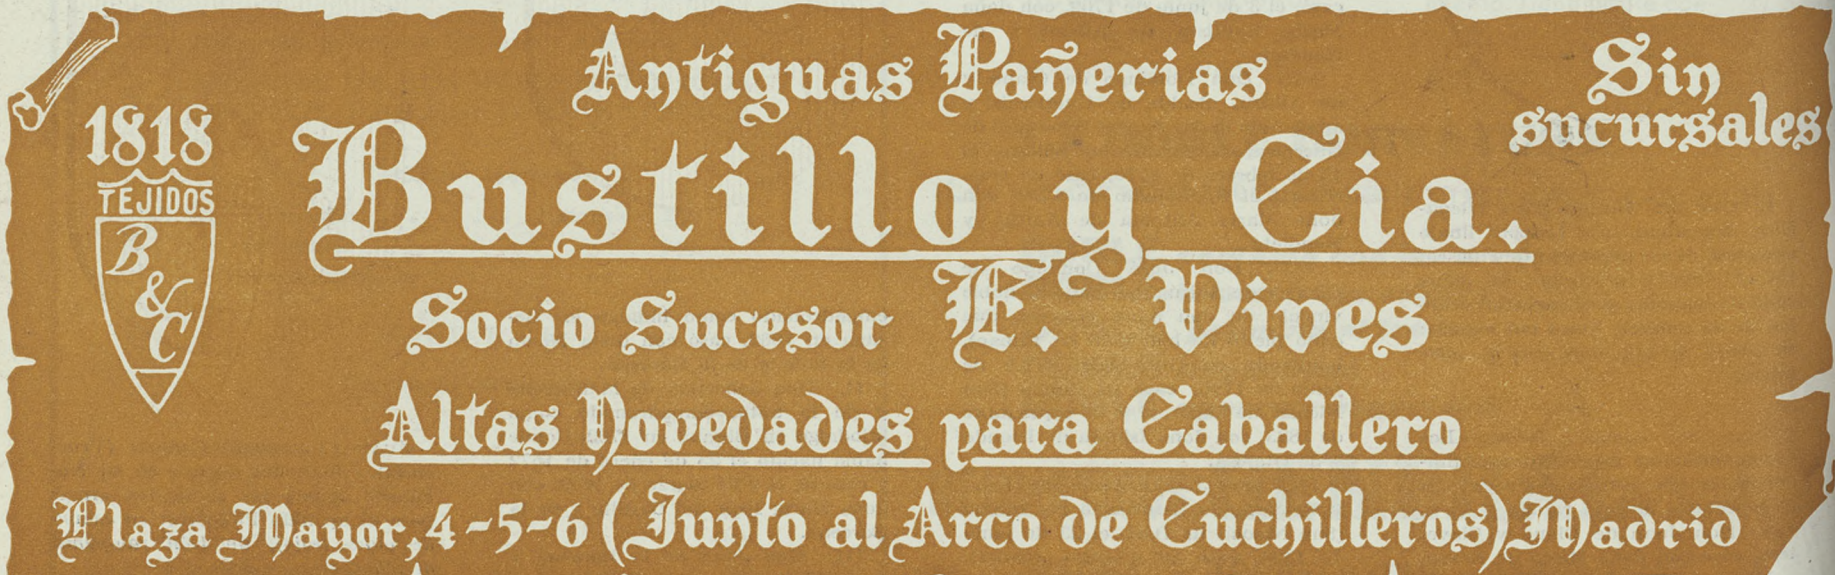 Antiguas Pañerias
Sin
sucursales
1818
TEJIDOS
B
&
C
Bustillo y Cia.
Socio Sucesor F. Vives
Altas Novedades para Caballero
Plaza Mayor, 4-5-6 (Junto al Arco de Cuchilleros) Madrid